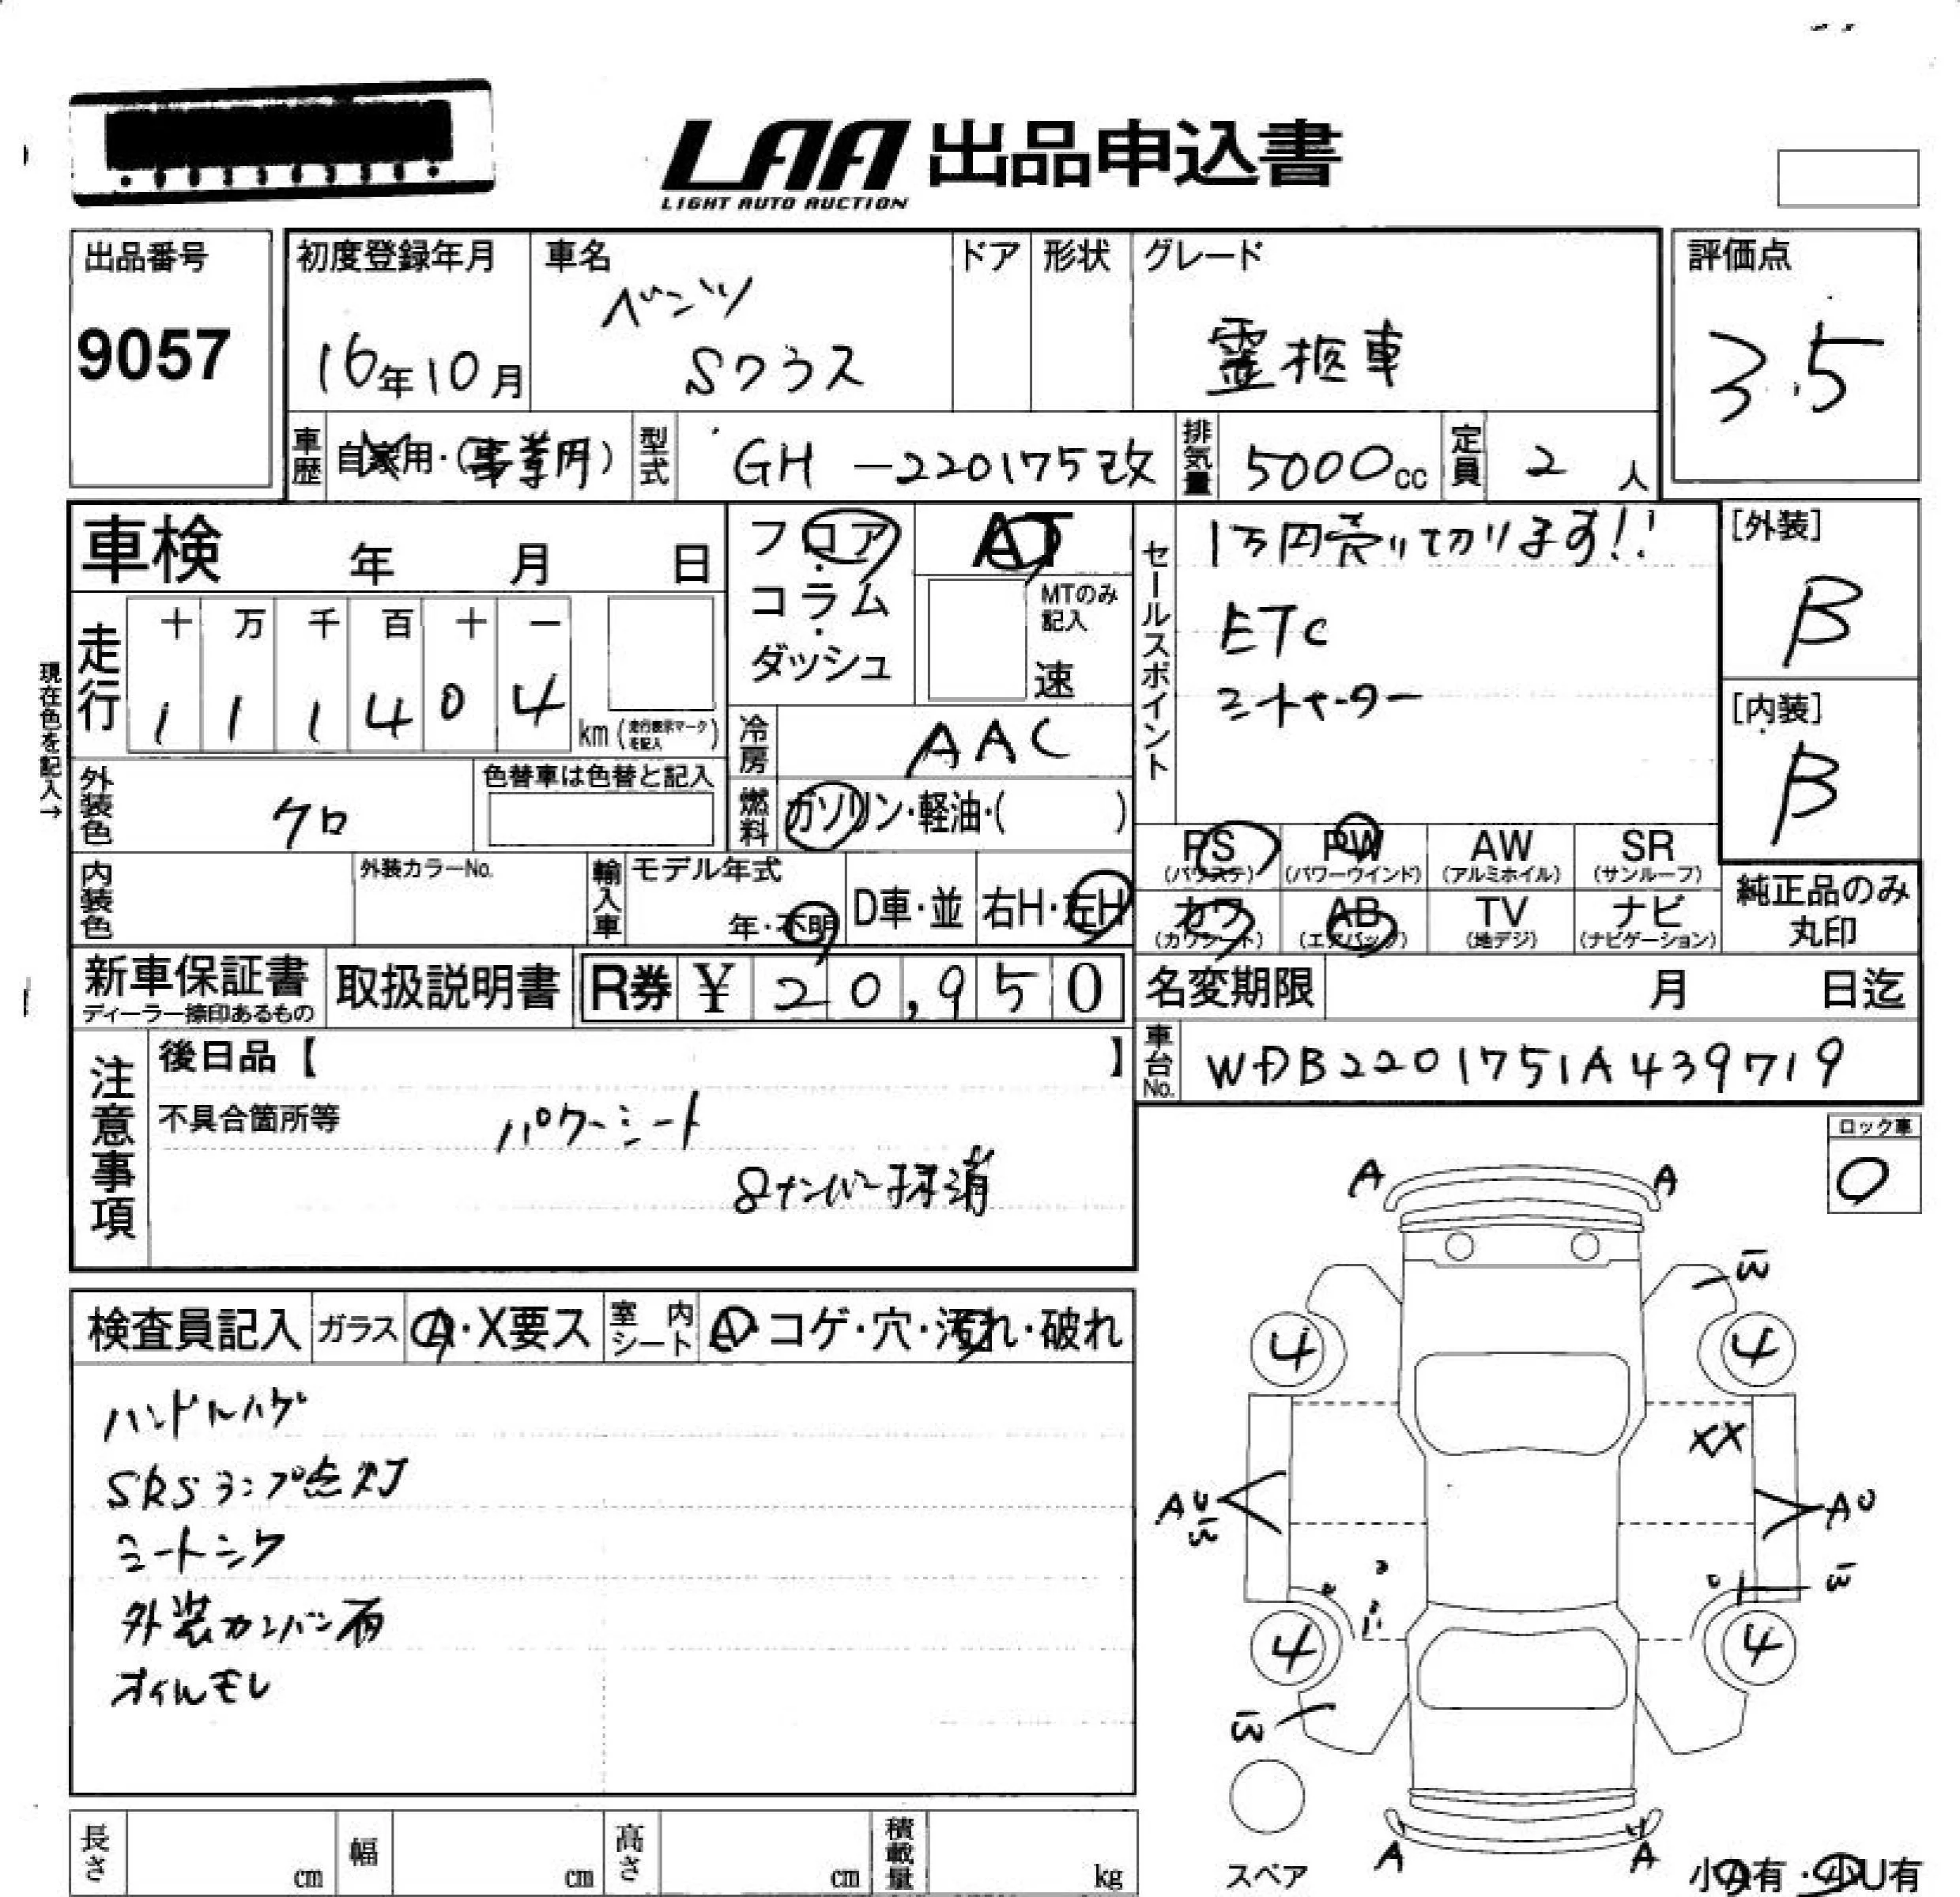 LAA 出品申込書
LIGHT AUTO AUCTION
出品番号
9057
初度登録年月
16年10月
車名
ベンツ
Sクラス
ドア
形状
グレード
霊柩車
評価点
3.5
車歴
自家用・(事業用)
型式
GH-220175改
排気量
5000cc
定員
2人
車検
年 月 日
フロア
・
コラム
・
ダッシュ
AT
MTのみ
記入
速
セールスポイント
1万円売り切ります!!
ETC
[外装]
B
[内装]
B
現在色を記入→
走行
十 万 千 百 十 一
1 1 1 4 0 4
km(走行表示マークを記入)
冷房
AAC
燃料
ガソリン・軽油・( )
外装色
クロ
色替車は色替と記入
内装色
外装カラーNo.
輸入車
モデル年式
年・不明
D車・並
右H・左H
PS
(パワステ)
PW
(パワーウインド)
AW
(アルミホイル)
SR
(サンルーフ)
カワ
(カワシート)
AB
(エアバック)
TV
(地デジ)
ナビ
(ナビゲーション)
純正品のみ
丸印
新車保証書
ディーラー捺印あるもの
取扱説明書
R券 ¥ 20,950
名変期限
月 日迄
車台No.
WDB2201751A439719
注意事項
後日品【 】
不具合箇所等
パワーシート
8ナンバー抹消
ロック車
O
検査員記入
ガラス
A・X要ス
室内シート
A・コゲ・穴・汚れ・破れ
ハンドルハゲ
SRSランプ点灯
外装カンバン有
オイルモレ
A A
W
4 4
XX
AU
W
AU
W
4 4
W
A A
スペア
小A有・小U有
長さ cm
幅 cm
高さ cm
積載量 kg